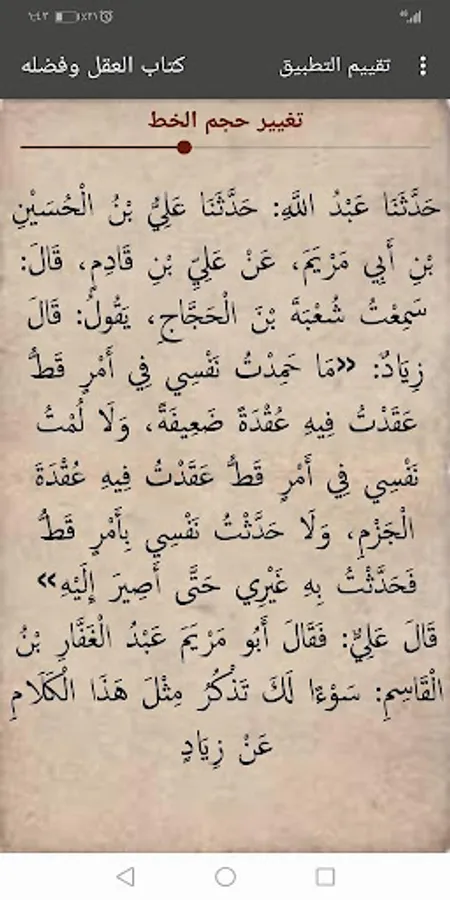 ١:٤٣ ٪٢١
كتاب العقل وفضله تقييم التطبيق
تغيير حجم الخط
حَدَّثَنَا عَبْدُ اللَّهِ: حَدَّثَنَا عَلِيُّ بْنُ الْحُسَيْنِ
بْنِ أَبِي مَرْيَمَ، عَنْ عَلِيِّ بْنِ قَادِمٍ، قَالَ:
سَمِعْتُ شُعْبَةَ بْنَ الْحَجَّاجِ، يَقُولُ: قَالَ
زِيَادٌ: «مَا حَمِدْتُ نَفْسِي فِي أَمْرٍ قَطُّ
عَقَدْتُ فِيهِ عُقْدَةً ضَعِيفَةً، وَلَا لُمْتُ
نَفْسِي فِي أَمْرٍ قَطُّ عَقَدْتُ فِيهِ عُقْدَةَ
الْجَزْمِ، وَلَا حَدَّثْتُ نَفْسِي بِأَمْرٍ قَطُّ
فَحَدَّثْتُ بِهِ غَيْرِي حَتَّى أَصِيرَ إِلَيْهِ»
قَالَ عَلِيٌّ: فَقَالَ أَبُو مَرْيَمَ عَبْدُ الْغَفَّارِ بْنُ
الْقَاسِمِ: سَوْءًا لَكَ تَذْكُرُ مِثْلَ هَذَا الْكَلَامِ
عَنْ زِيَادٍ